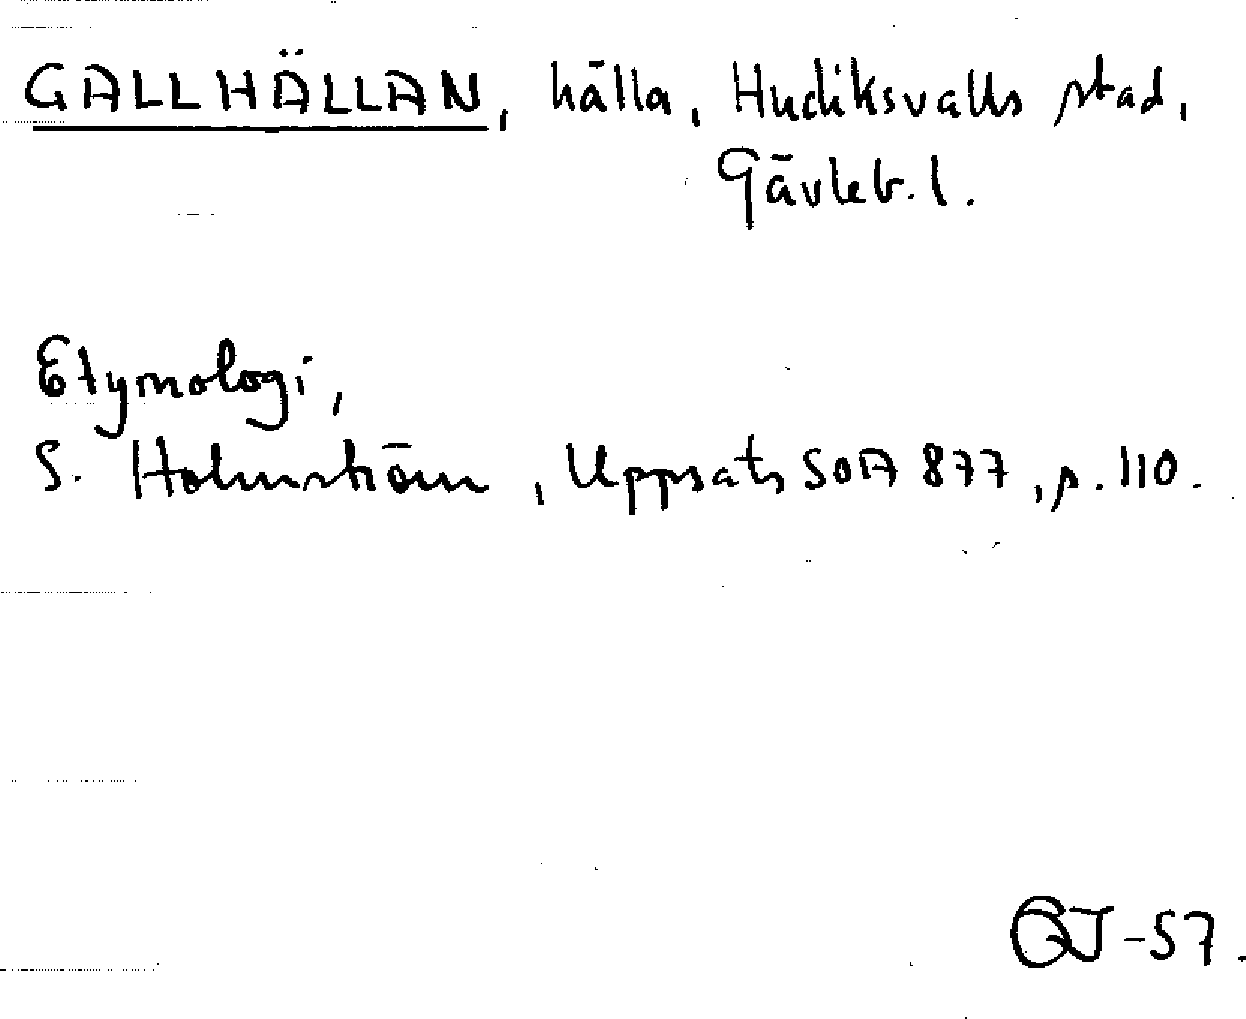 GALLHÄLLAN, hälla, Hudiksvalls stad,
Gävleb. l.
Etymologi,
S. Holmström, Uppsats SOA 877, p. 110.
-57.